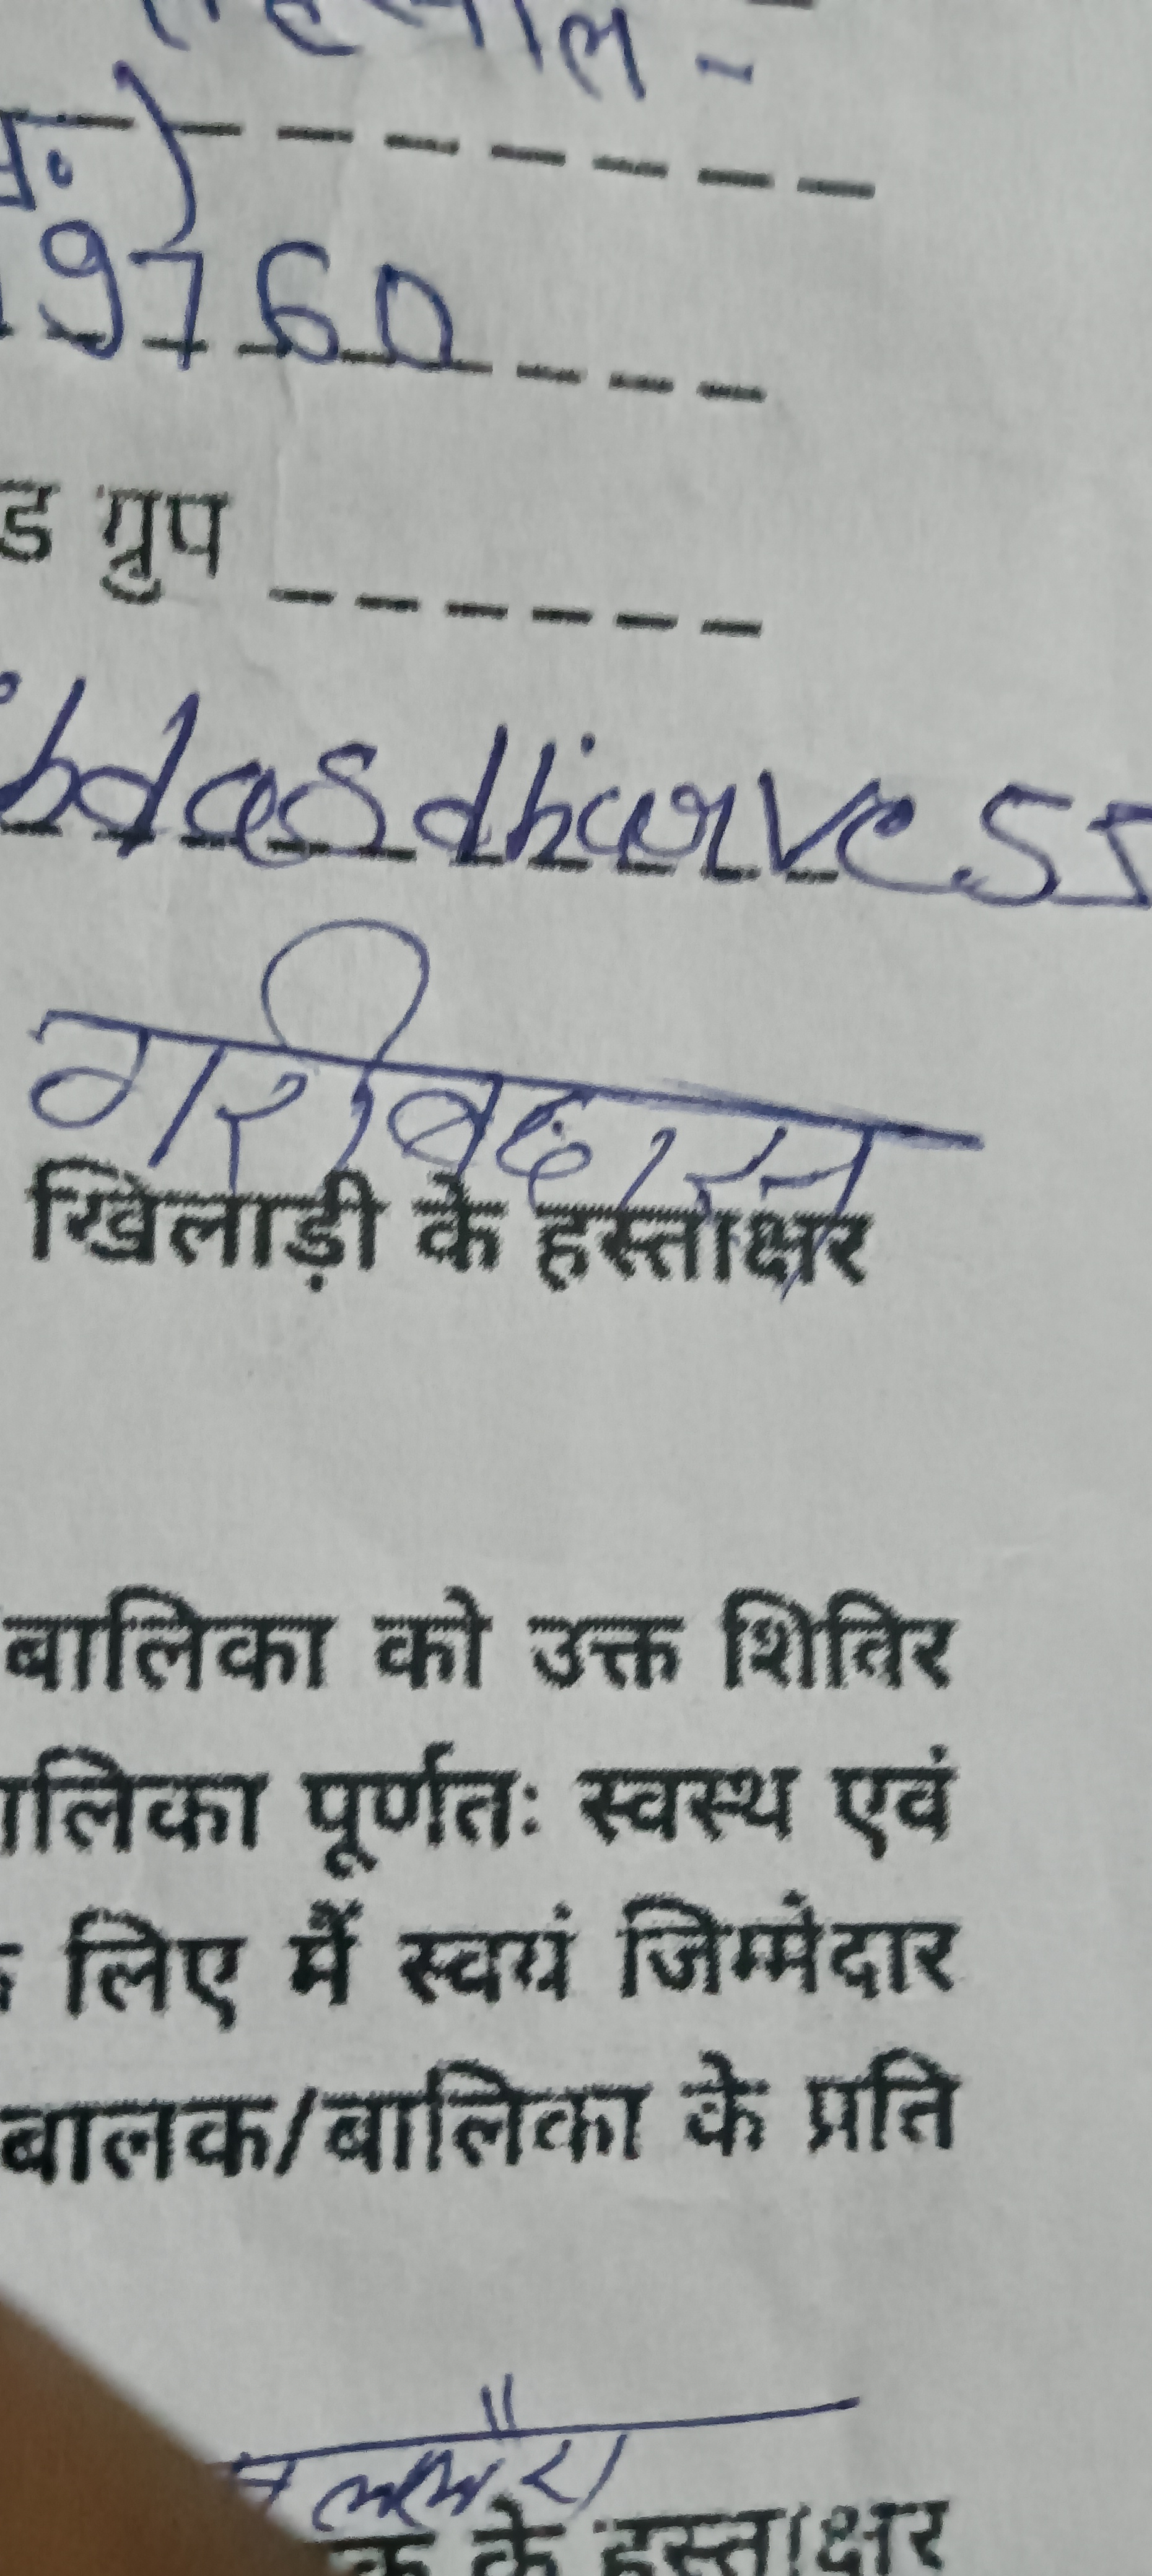 9760
ड ग्रुप
bdasdharvess
गरीबदास
खिलाड़ी के हस्ताक्षर
बालिका को उक्त शिविर
ालिका पूर्णतः स्वस्थ एवं
लिए मैं स्वयं जिम्मेदार
बालक/बालिका के प्रति
क के हस्ताक्षर